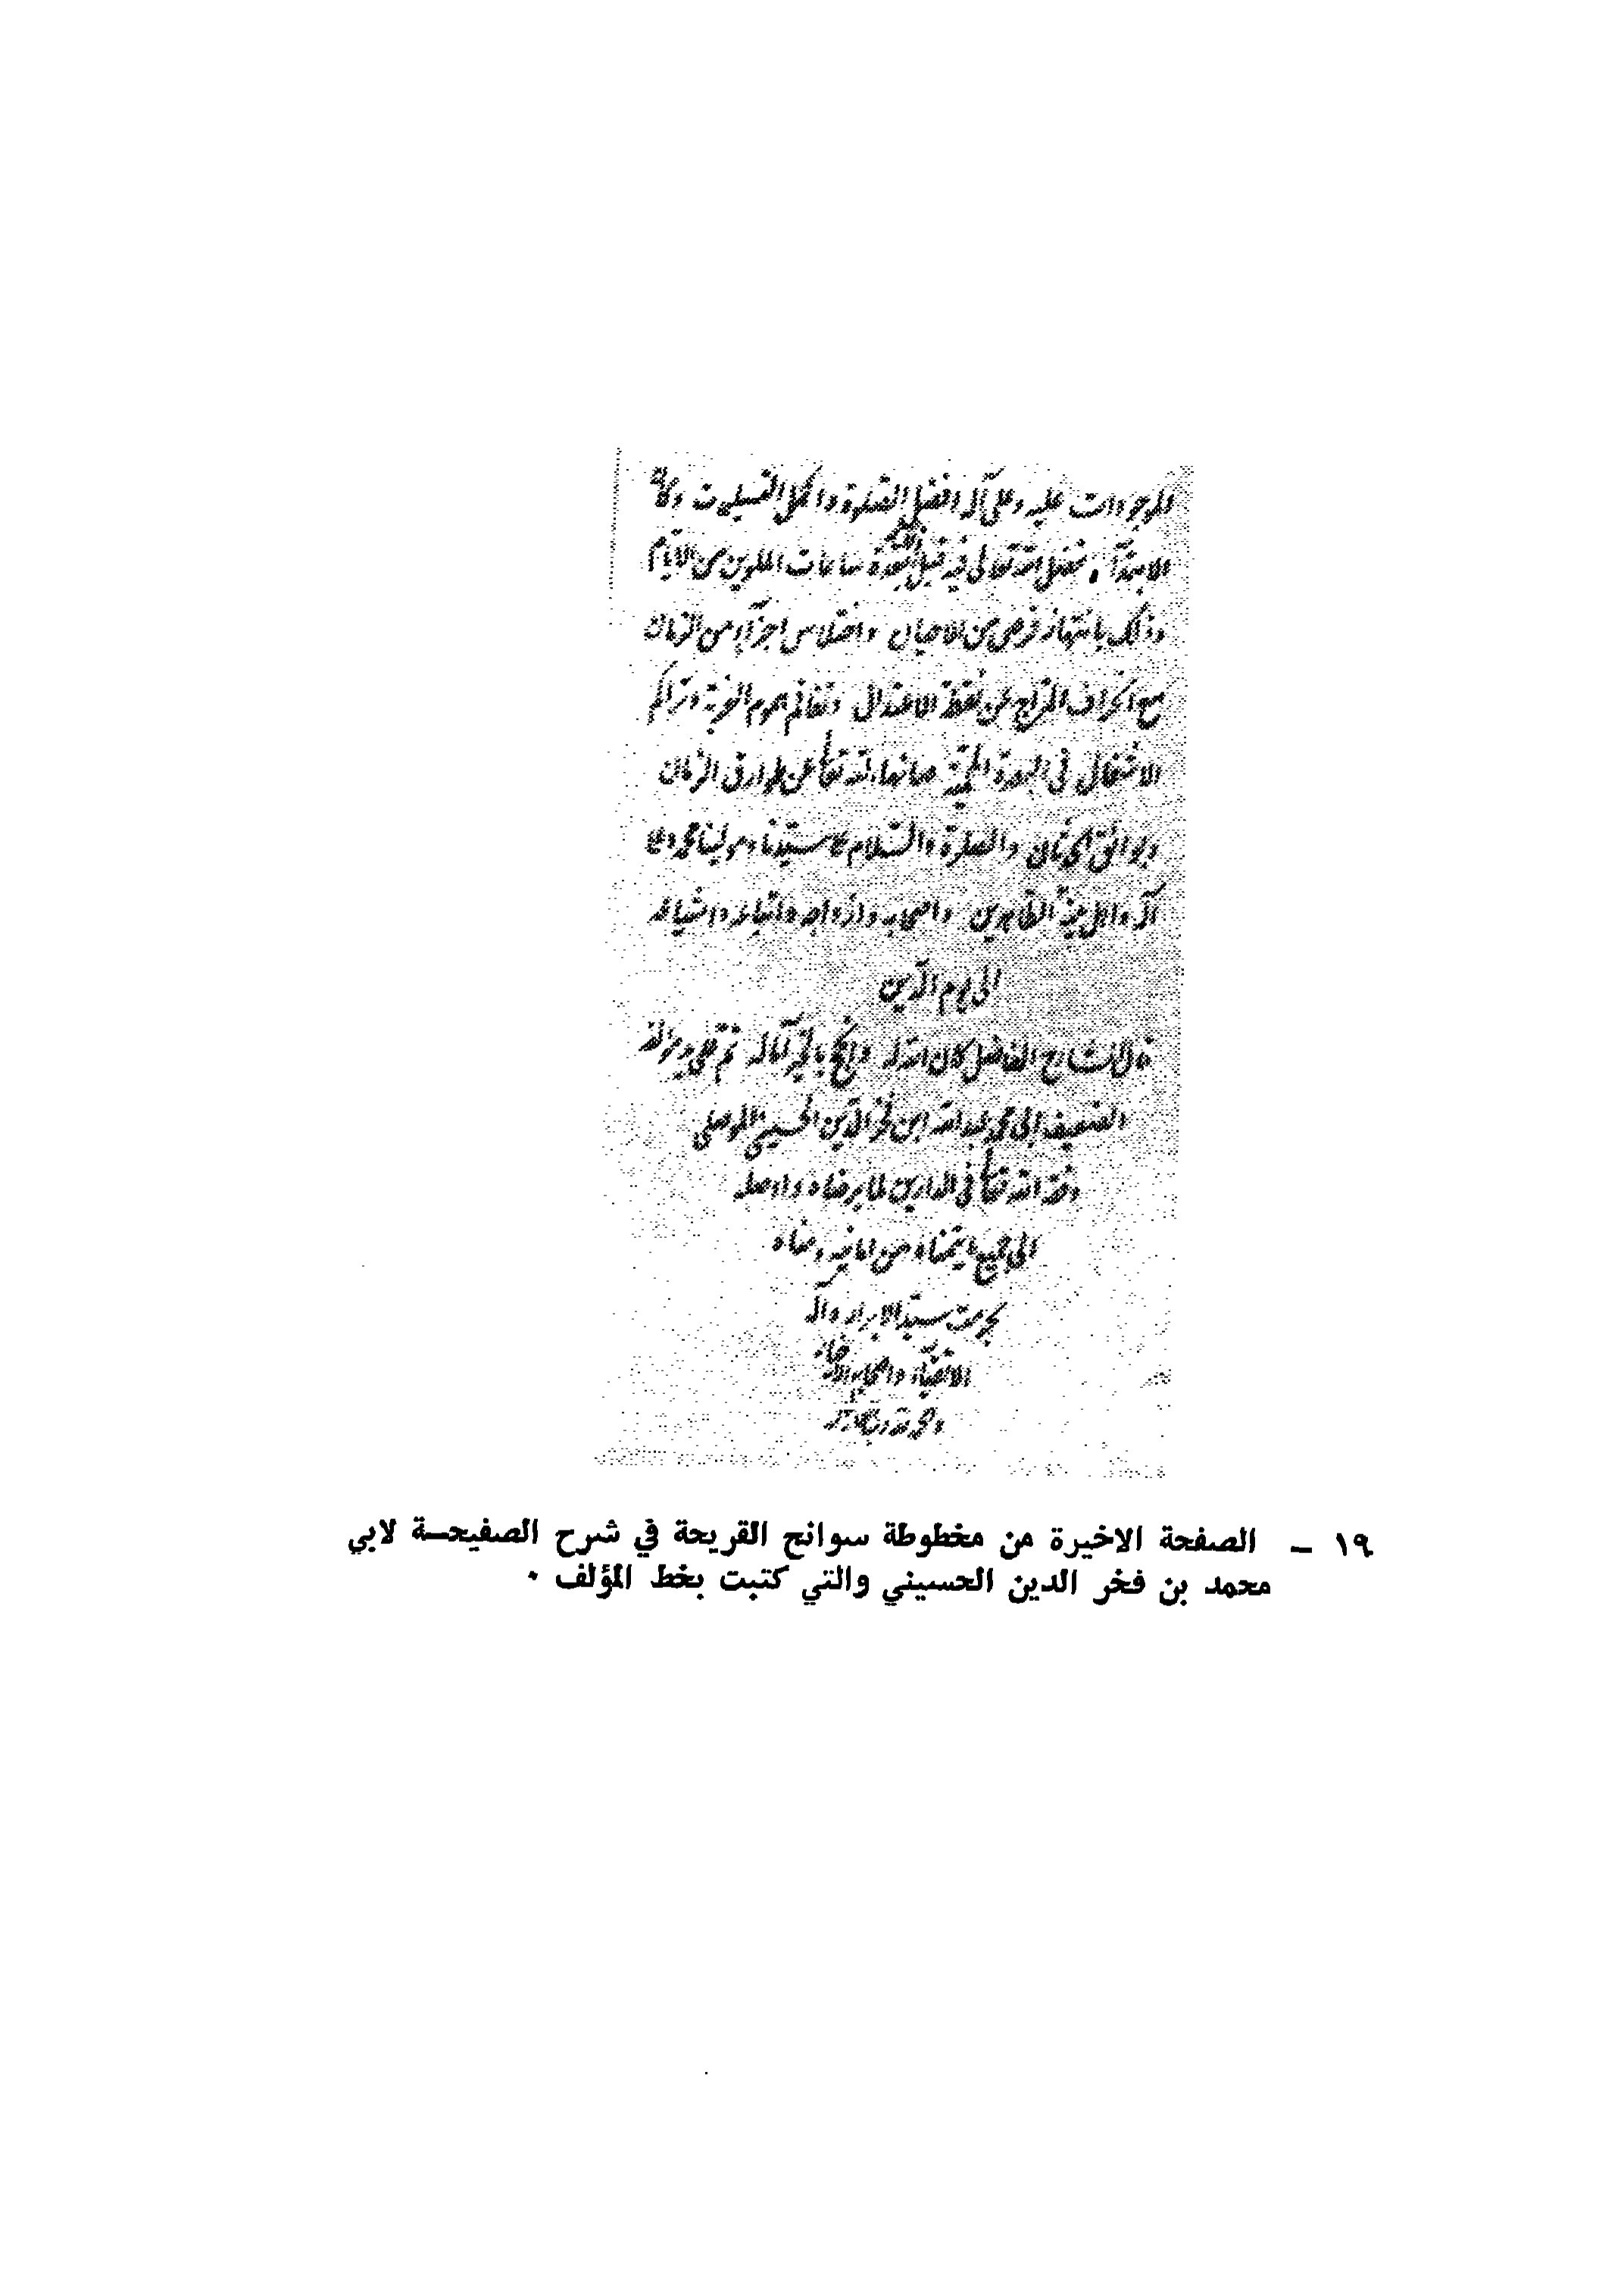 الموجودات عليه وعلى آله افضل الصلوة واكمل التسليمات وكان
الابتداء بفضل الله تعالى فيه قبل ساعات الملوين من الايام
وذلك بانتهاز فرص من الاحيان واختلاس اجزاء من الزمان
مع انحراف المزاج عن نقطة الاعتدال وتفاقم هموم الغربة وتراكم
الاشغال في البلدة المحمية صانها الله تعا عن طوارق الزمان
وبوائق الحدثان والصلوة والسلام على سيدنا ومولينا محمد وعلى
آله واهل بيته الطاهرين واصحابه وازواجه واتباعه واشياعه
الى يوم الدين
قال الشارح الفاضل كان الله له وانجح بالخير آماله تم بقلم مؤلفه
الضعيف ابى محمد عبد الله ابن فخر الدين الحسينى الموصلي
وفقه الله تعا في الدارين لما يرضاه واوصله
الى جميع ما يتمناه من امانيه ومناه
بحرمت سيد الابرار وآله
الاتقياء واصحابه
والحمد لله رب
١٩ – الصفحة الاخيرة من مخطوطة سوانح القريحة في شرح الصفيحــة لابي
محمد بن فخر الدين الحسيني والتي كتبت بخط المؤلف ٠